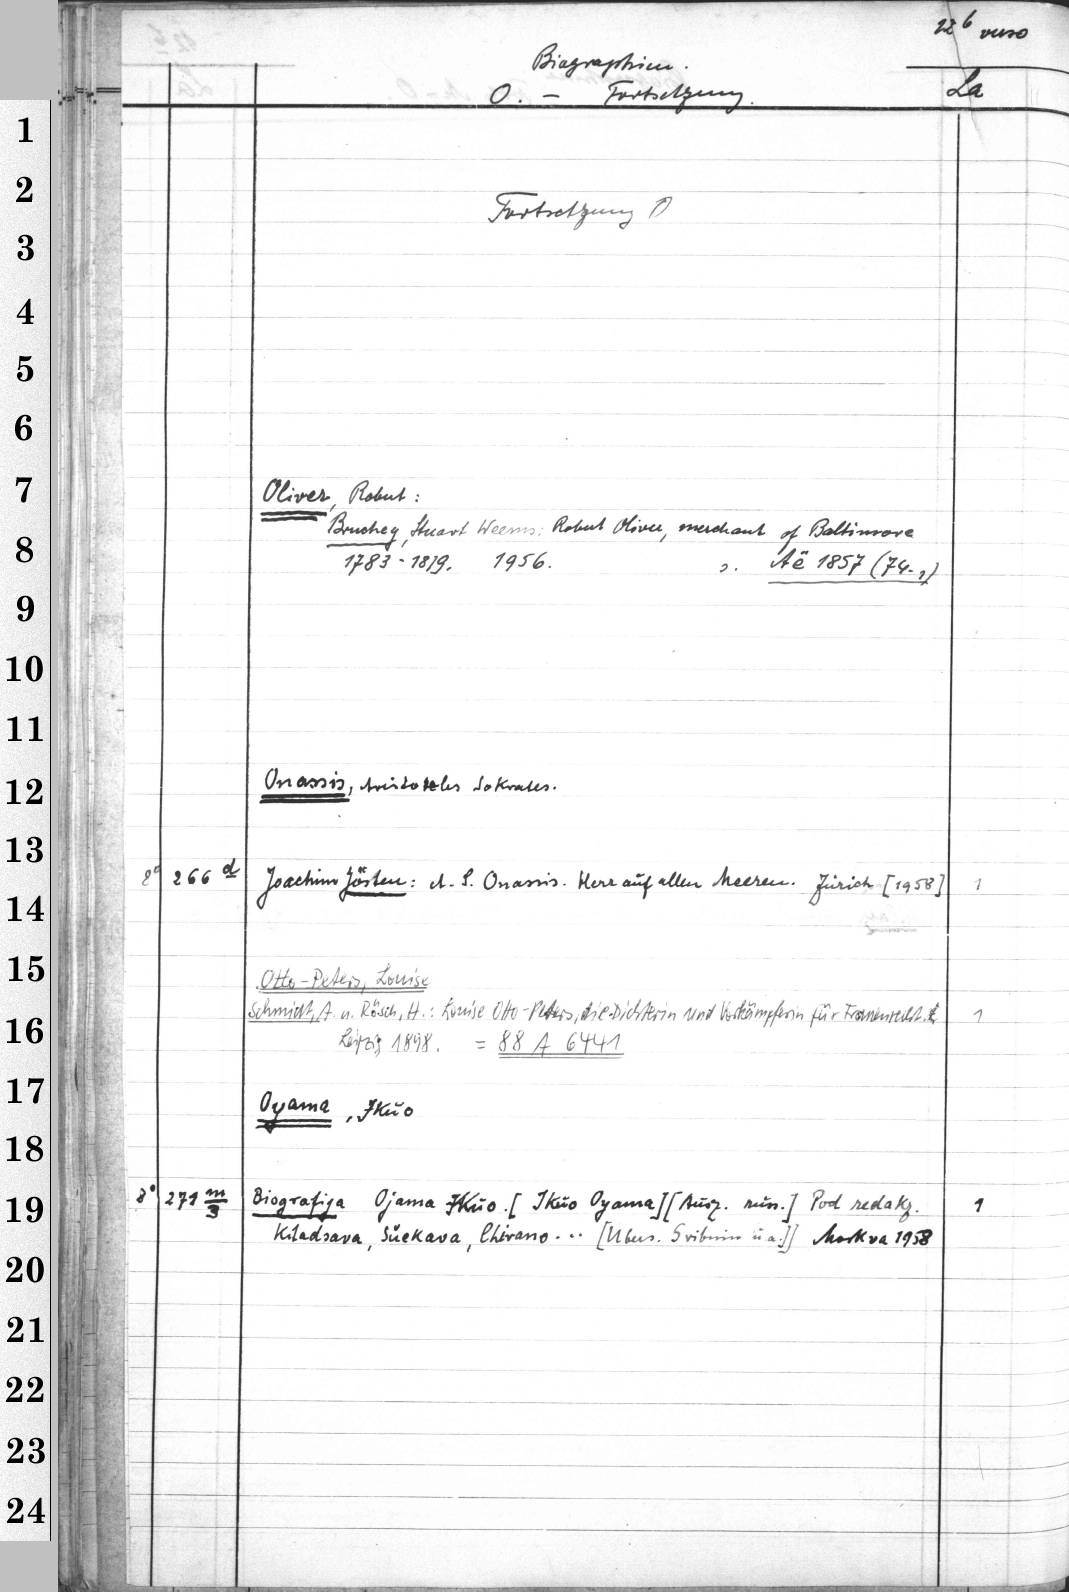 22 b verso
Biographien.
O. — Fortsetzung. La
1
2
Fortsetzung O
3
4
5
6
7
Oliver, Robert:
Bruchey, Stuart Weems: Robert Oliver, merchant of Baltimore
8
1783-1819. 1956. s. Aë 1857 (74-1)
9
10
11
12
Onassis, Aristoteles Sokrates.
13
8° 266 d Joachim Jösten: A. S. Onassis. Herr auf allen Meeren. Zürich [1958] 1
14
15
Otto-Peters, Louise
Schmidt, A. u. Rösch, H.: Louise Otto-Peters, die Dichterin und Vorkämpferin für Frauenrecht. 1
16
Leipzig 1898. = 88 A 6441
17
Oyama, Ikŭo
18
19
8° 271 m/3 Biografija Ojama Ikŭo. [Ikŭo Oyama] [Ausz. russ.] Pod redakz. 1
Kitadsava, Sŭekava, Chirano... [Übers. u a.]] Moskva 1958
20
21
22
23
24